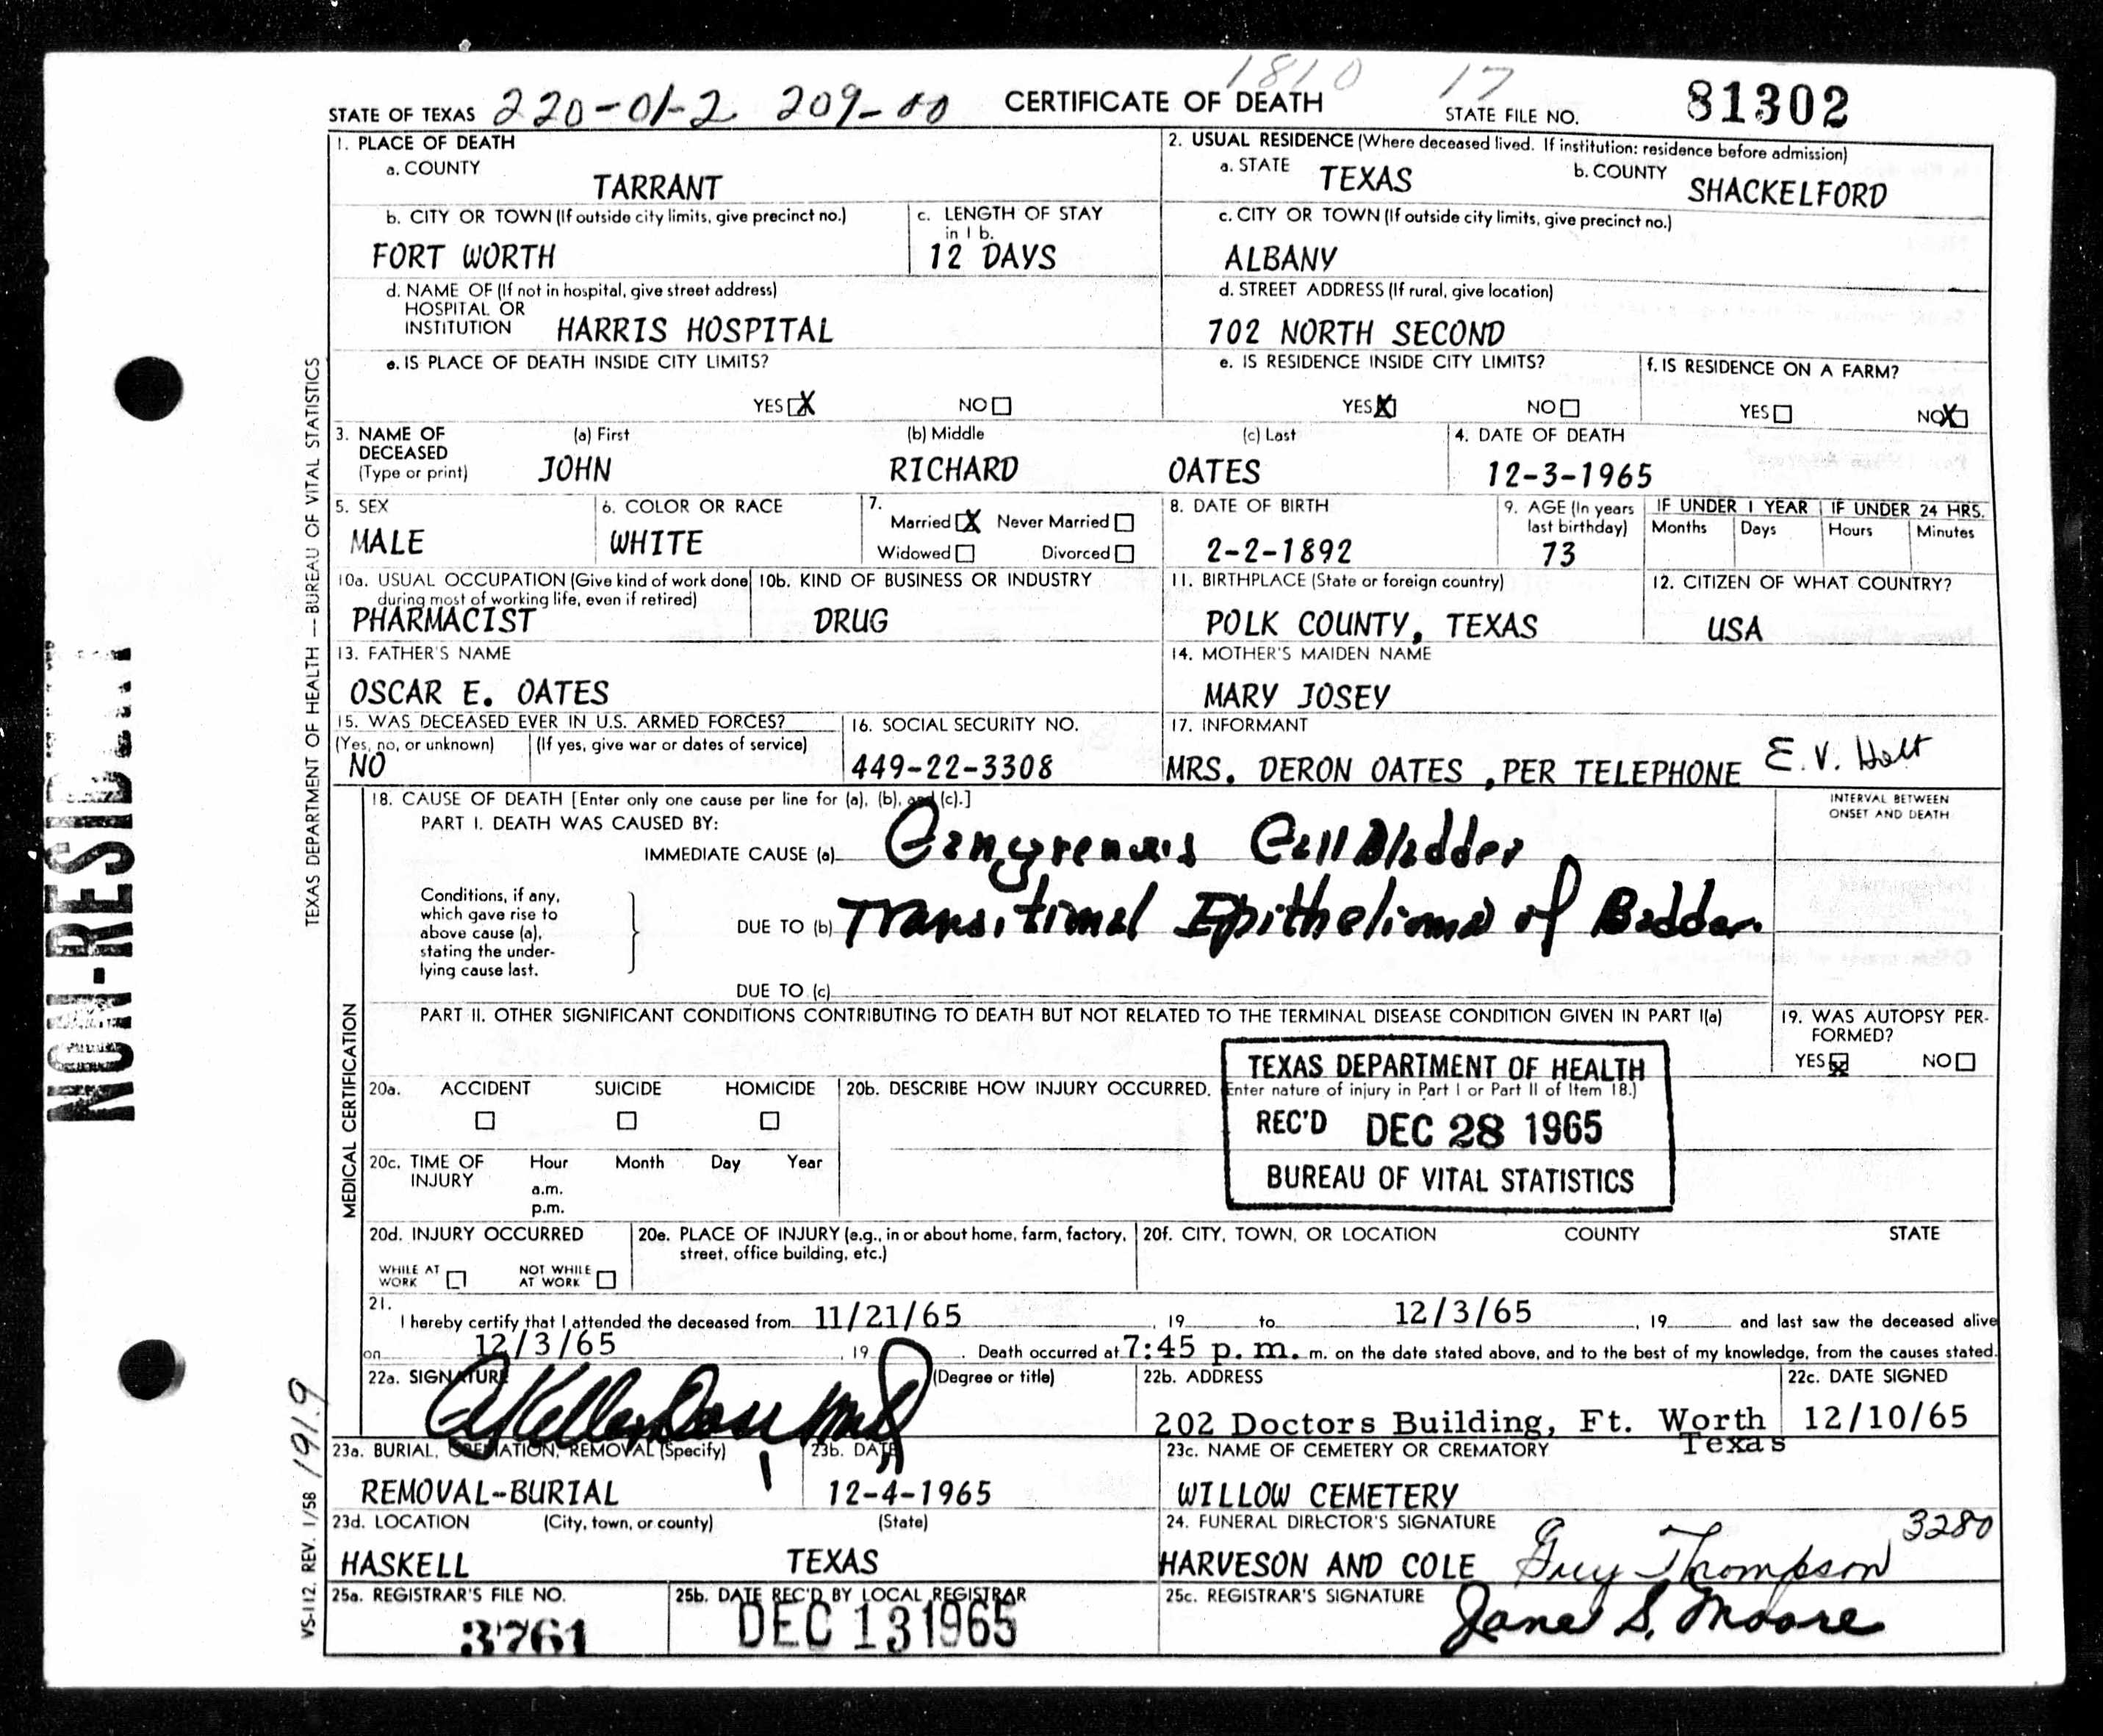 1810 17
STATE OF TEXAS 220-01-2 209-00 CERTIFICATE OF DEATH STATE FILE NO. 81302
1. PLACE OF DEATH
a. COUNTY
TARRANT
2. USUAL RESIDENCE (Where deceased lived. If institution: residence before admission)
a. STATE TEXAS b. COUNTY SHACKELFORD
b. CITY OR TOWN (If outside city limits, give precinct no.)
FORT WORTH
c. LENGTH OF STAY
in 1 b.
12 DAYS
c. CITY OR TOWN (If outside city limits, give precinct no.)
ALBANY
d. NAME OF (If not in hospital, give street address)
HOSPITAL OR
INSTITUTION HARRIS HOSPITAL
d. STREET ADDRESS (If rural, give location)
702 NORTH SECOND
e. IS PLACE OF DEATH INSIDE CITY LIMITS?
YES X NO
e. IS RESIDENCE INSIDE CITY LIMITS?
YES X NO
f. IS RESIDENCE ON A FARM?
YES NO X
3. NAME OF
DECEASED
(Type or print)
(a) First (b) Middle (c) Last
JOHN RICHARD OATES
4. DATE OF DEATH
12-3-1965
5. SEX
MALE
6. COLOR OR RACE
WHITE
7.
Married X Never Married
Widowed Divorced
8. DATE OF BIRTH
2-2-1892
9. AGE (In years
last birthday)
73
IF UNDER 1 YEAR IF UNDER 24 HRS.
Months Days Hours Minutes
10a. USUAL OCCUPATION (Give kind of work done
during most of working life, even if retired)
PHARMACIST
10b. KIND OF BUSINESS OR INDUSTRY
DRUG
11. BIRTHPLACE (State or foreign country)
POLK COUNTY, TEXAS
12. CITIZEN OF WHAT COUNTRY?
USA
13. FATHER'S NAME
OSCAR E. OATES
14. MOTHER'S MAIDEN NAME
MARY JOSEY
15. WAS DECEASED EVER IN U.S. ARMED FORCES?
(Yes, no, or unknown) (If yes, give war or dates of service)
NO
16. SOCIAL SECURITY NO.
449-22-3308
17. INFORMANT
MRS. DERON OATES , PER TELEPHONE E. V. Holt
18. CAUSE OF DEATH [Enter only one cause per line for (a), (b), and (c).]
PART I. DEATH WAS CAUSED BY:
IMMEDIATE CAUSE (a) Gangrenous Gall Bladder
INTERVAL BETWEEN
ONSET AND DEATH
Conditions, if any,
which gave rise to
above cause (a),
stating the under-
lying cause last.
DUE TO (b) Transitional Epithelioma of Baddar
DUE TO (c)
PART II. OTHER SIGNIFICANT CONDITIONS CONTRIBUTING TO DEATH BUT NOT RELATED TO THE TERMINAL DISEASE CONDITION GIVEN IN PART I(a)
19. WAS AUTOPSY PER-
FORMED?
YES X NO
20a. ACCIDENT SUICIDE HOMICIDE
20b. DESCRIBE HOW INJURY OCCURRED. (Enter nature of injury in Part I or Part II of Item 18.)
TEXAS DEPARTMENT OF HEALTH
REC'D DEC 28 1965
BUREAU OF VITAL STATISTICS
20c. TIME OF
INJURY
Hour Month Day Year
a.m.
p.m.
20d. INJURY OCCURRED
WHILE AT
WORK
NOT WHILE
AT WORK
20e. PLACE OF INJURY (e.g., in or about home, farm, factory,
street, office building, etc.)
20f. CITY, TOWN, OR LOCATION COUNTY STATE
21.
I hereby certify that I attended the deceased from 11/21/65 , 19 to 12/3/65 , 19 and last saw the deceased alive
on 12/3/65 , 19 . Death occurred at 7:45 p. m. m. on the date stated above, and to the best of my knowledge, from the causes stated.
22a. SIGNATURE (Degree or title)
22b. ADDRESS
202 Doctors Building, Ft. Worth
Texas
22c. DATE SIGNED
12/10/65
23a. BURIAL, CREMATION, REMOVAL (Specify)
REMOVAL-BURIAL
23b. DATE
12-4-1965
23c. NAME OF CEMETERY OR CREMATORY
WILLOW CEMETERY
23d. LOCATION (City, town, or county) (State)
HASKELL TEXAS
24. FUNERAL DIRECTOR'S SIGNATURE 3280
HARVESON AND COLE Guy Thompson
25a. REGISTRAR'S FILE NO.
3761
25b. DATE REC'D BY LOCAL REGISTRAR
DEC 13 1965
25c. REGISTRAR'S SIGNATURE
Jane S. Moore
TEXAS DEPARTMENT OF HEALTH — BUREAU OF VITAL STATISTICS
MEDICAL CERTIFICATION
VS-112. REV. 1/58 191.9
NON-RESIDENT